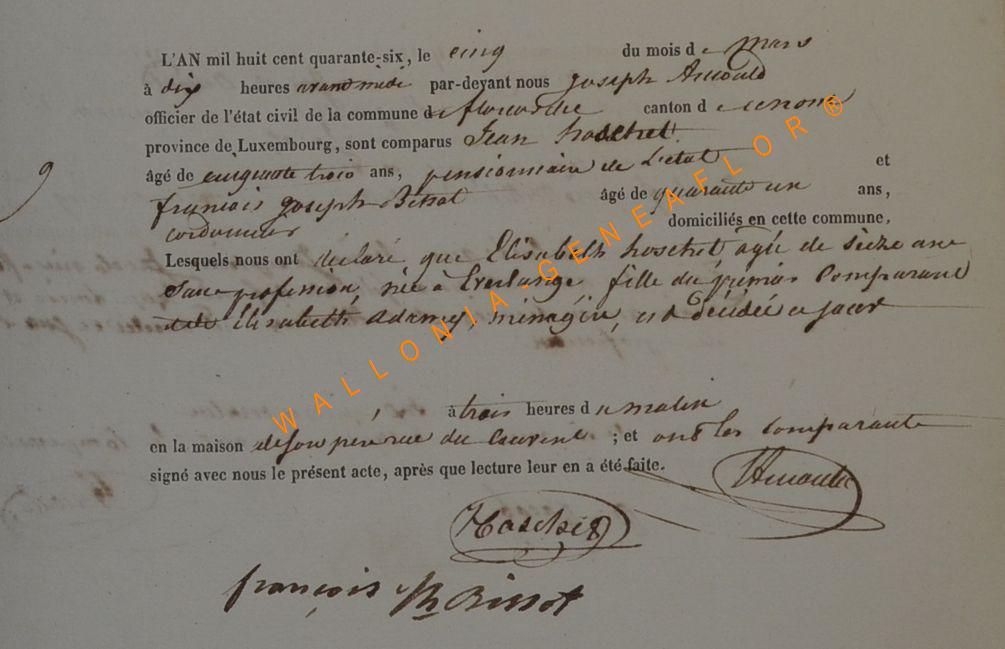 L'AN mil huit cent quarante-six, le cinq du mois de mars
à dix heures avant midi par-devant nous Joseph Arnould
officier de l'état civil de la commune de canton d
province de Luxembourg, sont comparus Jean hoschet
âgé de cinquante trois ans, pensionnaire de l'état et
françois joseph Bissot âgé de quarante un ans,
cordonnier domiciliés en cette commune,
Lesquels nous ont déclaré que Elisabeth hoschet, agée de seize ans
sans profession, née à Everlange fille du premier Comparant
et de Elisabeth Adamy, ménagère, est décédée ce jour
à trois heures du matin
en la maison de son père rue du ; et ont les comparants
signé avec nous le présent acte, après que lecture leur en a été faite.
JArnould
Hoschet
françois Bissot
9
WALLONIA-GENEAFLOR®